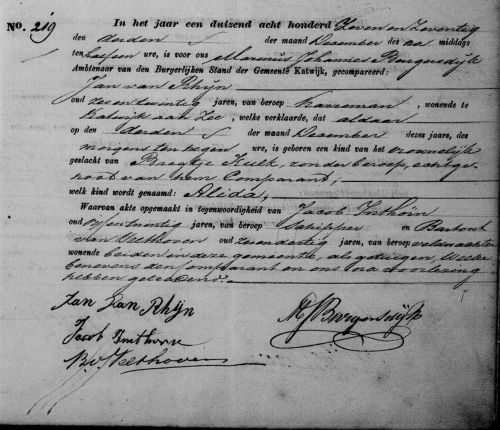 No. 219
In het jaar een duizend acht honderd Zeven en Zeventig
den derden der maand December des na middags
ten half een ure, is voor ons Marinus Johannes Burgersdijk
Ambtenaar van den Burgerlijken Stand der Gemeente Katwijk, gecompareerd:
Jan van Rhijn
oud zesentwintig jaren, van beroep karreman, wonende te
Katwijk aan Zee, welke verklaarde, dat aldaar
op den derden der maand December dezes jaars, des
morgens ten negen ure, is geboren een kind van het vrouwelijk
geslacht van Kulk, zonder beroep, echtge-
noot van hem Comparant;
welk kind wordt genaamd: Alida,
Waarvan akte opgemaakt in tegenwoordigheid van Jacob Imthorn
oud jaren, van beroep Schipper en Barbout
van Velthoven oud zesendertig jaren, van beroep veldwachter
wonende beiden in deze gemeente, als getuigen, Welke
benevens den Comparant en ons na voorlezing
hebben geteekend.
Jan van Rhijn
MJBurgersdijk
Jacob Imthorn
B. v. Velthoven